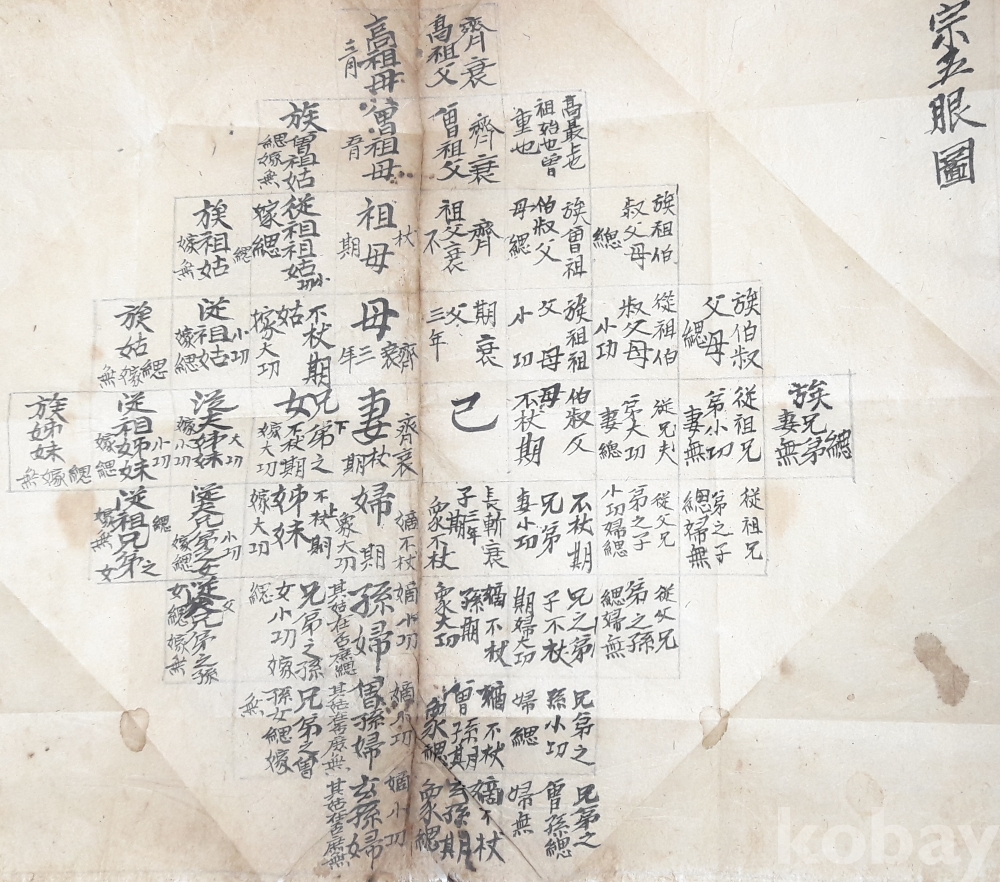 宗五服圖
齊衰
高祖父
高祖母
三月
高最上也
祖始也曾
重也
齊衰
曾祖父
曾祖母
五月
族曾祖姑
緦嫁無
族祖伯
叔父母
緦
族曾祖
伯叔父
母緦
齊
祖父衰
不
杖
祖母
期
從祖祖姑
小功
嫁緦
族祖姑
緦
嫁無
族伯叔
父母
緦
從祖伯
叔父母
小功
族祖祖
父母
小功
期衰
父
三年
齊衰
母
三年
不杖期
姑
嫁大功
從祖姑
小功
嫁緦
族姑
緦
嫁無
族兄弟緦
妻無
從祖兄
弟小功
妻無
從兄夫
弟大功
妻緦
伯叔父
母
不杖期
己
齊衰
妻杖期
兄弟之
女不杖期
嫁大功
姊妹
大功
嫁小功
從祖姊妹
小功
嫁緦
族姊妹
緦
嫁無
從祖兄
弟之子
緦婦無
從父兄
弟之子
小功婦緦
不杖期
兄弟
妻小功
長斬衰
子三年
期
衆不杖
嫡不杖
婦期
衆大功
不杖期
姊妹
嫁大功
兄弟之女
小功
嫁緦
從祖兄弟之女
緦
嫁無
從父兄
弟之孫
緦婦無
兄之弟
子不杖
期婦大功
嫡不杖
孫期
衆大功
嫡小功
孫婦
其姑在否應緦
兄弟之孫
女小功嫁
緦
兄弟之孫
女緦嫁無
兄弟之
孫小功
婦緦
嫡不杖
曾孫期
衆緦
嫡小功
曾孫婦
兄弟之曾
孫女緦嫁
無
兄弟之
曾孫緦
婦無
嫡不杖
玄孫期
衆緦
嫡小功
玄孫婦
其姑在否應無
kobay